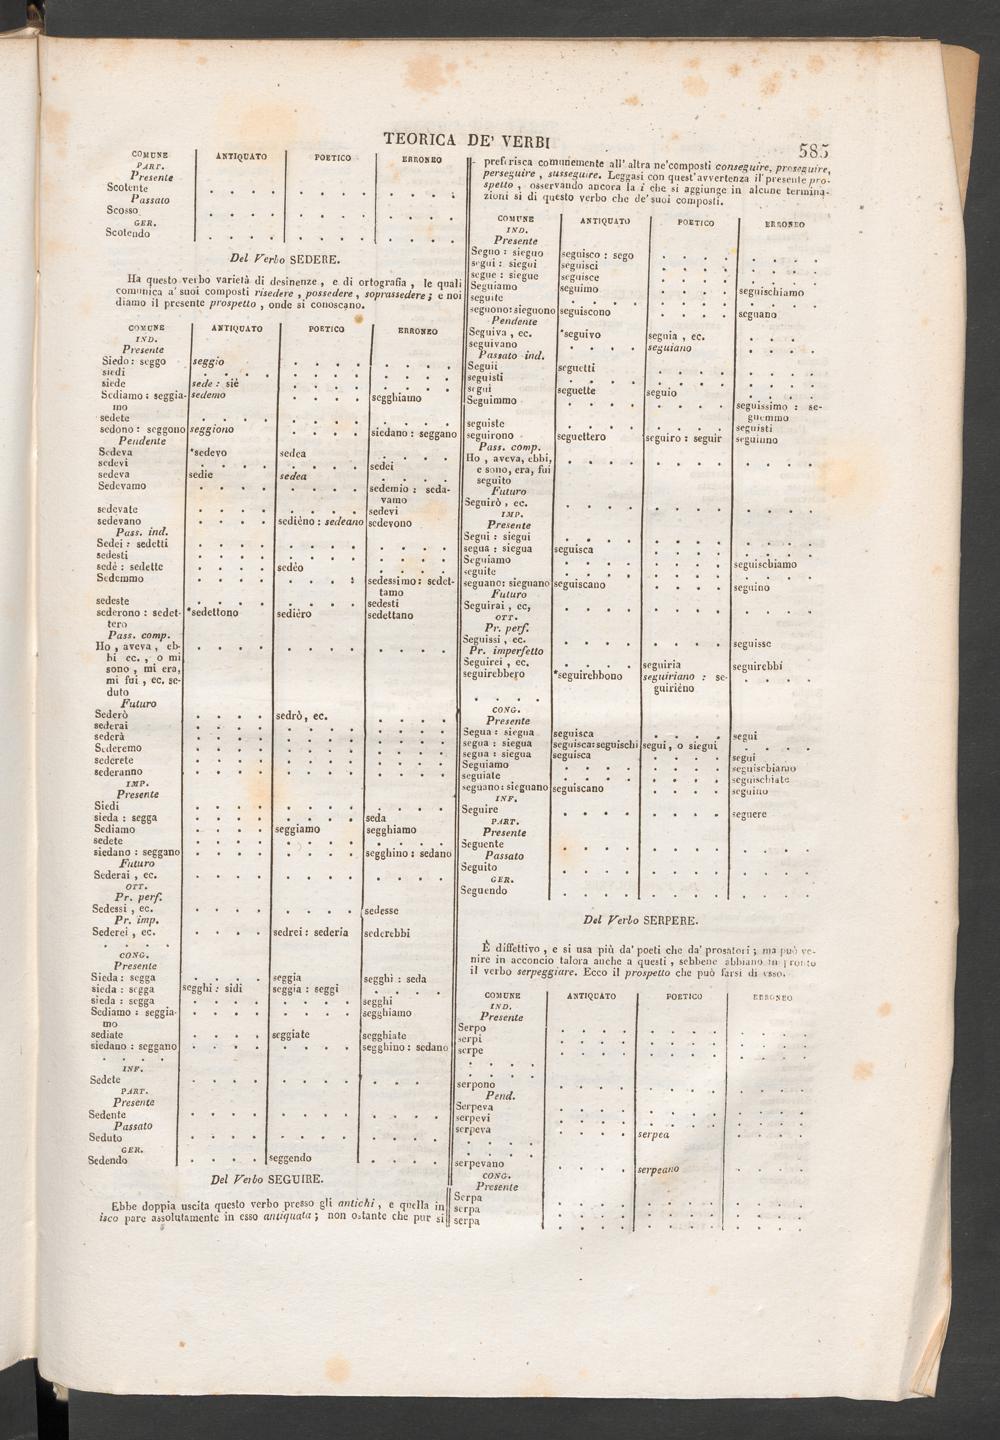 TEORICA DE' VERBI
585
COMUNE ANTIQUATO POETICO ERRONEO
PART.
Presente
Scotente . . . . . . . . . . . .
Passato
Scosso . . . . . . . . . . . .
GER.
Scotendo . . . . . . . . . . . .
Del Verbo SEDERE.
Ha questo verbo varietà di desinenze, e di ortografia, le quali
comunica a' suoi composti risedere, possedere, soprassedere; e noi
diamo il presente prospetto, onde si conoscano.
COMUNE ANTIQUATO POETICO ERRONEO
IND.
Presente
Siedo: seggo seggio . . . . . . . .
siedi . . . . . . . . . . . .
siede sede: siè . . . . . . . .
Sediamo: seggia- sedemo . . . . segghiamo
mo
sedete . . . . . . . . . . . .
sedono: seggono seggiono . . . . siedano: seggano
Pendente
Sedeva *sedevo sedea . . . .
sedevi . . . . . . . . sedei
sedeva sedie sedea . . . .
Sedevamo . . . . . . . . sedemio: seda-
vamo
sedevate . . . . . . . . sedevi
sedevano . . . . sedièno: sedeano sedevono
Pass. ind.
Sedei: sedetti . . . . . . . . . . . .
sedesti . . . . . . . . . . . .
sedè: sedette . . . . sedèo . . . .
Sedemmo . . . . . . . . sedessimo: sedet-
tamo
sedeste . . . . . . . . sedesti
sederono: sedet- *sedettono sedièro sedettano
tero
Pass. comp.
Ho, aveva, eb- . . . . . . . . . . . .
bi ec., o mi
sono, mi era,
mi fui, ec. se-
duto
Futuro
Sederò . . . . sedrò, ec. . . . .
sederai . . . . . . . . . . . .
sederà . . . . . . . . . . . .
Sederemo . . . . . . . . . . . .
sederete . . . . . . . . . . . .
sederanno . . . . . . . . . . . .
IMP.
Presente
Siedi . . . . . . . . . . . .
sieda: segga . . . . . . . . seda
Sediamo . . . . seggiamo segghiamo
sedete . . . . . . . . . . . .
siedano: seggano . . . . . . . . segghino: sedano
Futuro
Sederai, ec. . . . . . . . . . . . .
OTT.
Pr. perf.
Sedessi, ec. . . . . . . . . sedesse
Pr. imp.
Sederei, ec. . . . . sedrei: sederia sederebbi
. . . .
CONG.
Presente
Sieda: segga . . . . seggia segghi: seda
sieda: segga segghi: sidi seggia: seggi . . . .
sieda: segga . . . . . . . . segghi
Sediamo: seggia- . . . . . . . . segghiamo
mo
sediate . . . . seggiate segghiate
siedano: seggano . . . . . . . . segghino: sedano
. . . .
INF.
Sedete . . . . . . . . . . . .
PART.
Presente
Sedente . . . . . . . . . . . .
Passato
Seduto . . . . . . . . . . . .
GER.
Sedendo . . . . seggendo . . . .
Del Verbo SEGUIRE.
Ebbe doppia uscita questo verbo presso gli antichi, e quella in
isco pare assolutamente in esso antiquata; non ostante che pur si
preferisca comunemente all' altra ne'composti conseguire, proseguire,
perseguire, susseguire. Leggasi con quest'avvertenza il presente pro-
spetto, osservando ancora la i che si aggiunge in alcune termina-
zioni sì di questo verbo che de' suoi composti.
COMUNE ANTIQUATO POETICO ERRONEO
IND.
Presente
Seguo: sieguo seguisco: sego . . . . . . . .
segui: siegui seguisci . . . . . . . .
segue: siegue seguisce . . . . . . . .
Seguiamo seguimo . . . . seguischiamo
seguite . . . . . . . . . . . .
seguono: sieguono seguiscono . . . . seguano
Pendente
Seguiva, ec. *seguivo seguia, ec. . . . .
seguivano . . . . seguiano . . . .
Passato ind.
Seguii seguetti . . . . . . . .
seguisti . . . . . . . . . . . .
seguì seguette seguio . . . .
Seguimmo . . . . . . . . seguissimo: se-
guemmo
seguiste . . . . . . . . seguisti
seguirono seguettero seguiro: seguir seguinno
Pass. comp.
Ho, aveva, ebbi, . . . . . . . . . . . .
e sono, era, fui
seguito
Futuro
Seguirò, ec. . . . . . . . . . . . .
IMP.
Presente
Segui: siegui . . . . . . . . . . . .
segua: siegua seguisca . . . . . . . .
Seguiamo . . . . . . . . seguischiamo
seguite . . . . . . . . . . . .
seguano: sieguano seguiscano . . . . seguino
Futuro
Seguirai, ec, . . . . . . . . . . . .
OTT.
Pr. perf.
Seguissi, ec. . . . . . . . . seguisse
Pr. imperfetto
Seguirei, ec. . . . . seguiria seguirebbi
seguirebbero *seguirebbono seguiriano: se- . . . .
guirièno
. . . .
CONG.
Presente
Segua: siegua seguisca . . . . segui
segua: siegua seguisca: seguischi segui, o siegui . . . .
segua: siegua seguisca . . . . segui
Seguiamo . . . . . . . . seguischiamo
seguiate . . . . . . . . seguischiate
seguano: sieguano seguiscano . . . . seguino
INF.
Seguire . . . . . . . . seguere
PART.
Presente
Seguente . . . . . . . . . . . .
Passato
Seguito . . . . . . . . . . . .
GER.
Seguendo . . . . . . . . . . . .
Del Verbo SERPERE.
È diffettivo, e si usa più da' poeti che da' prosatori; ma può ve-
nire in acconcio talora anche a questi, sebbene abbiano in pronto
il verbo serpeggiare. Ecco il prospetto che può farsi di esso.
COMUNE ANTIQUATO POETICO ERRONEO
IND.
Presente
Serpo . . . . . . . . . . . .
serpi . . . . . . . . . . . .
serpe . . . . . . . . . . . .
. . . .
. . . .
serpono . . . . . . . . . . . .
Pend.
Serpeva . . . . . . . . . . . .
serpevi . . . . . . . . . . . .
serpeva . . . . serpea . . . .
. . . .
. . . .
serpevano . . . . serpeano . . . .
CONG.
Presente
Serpa . . . . . . . . . . . .
serpa . . . . . . . . . . . .
serpa . . . . . . . . . . . .